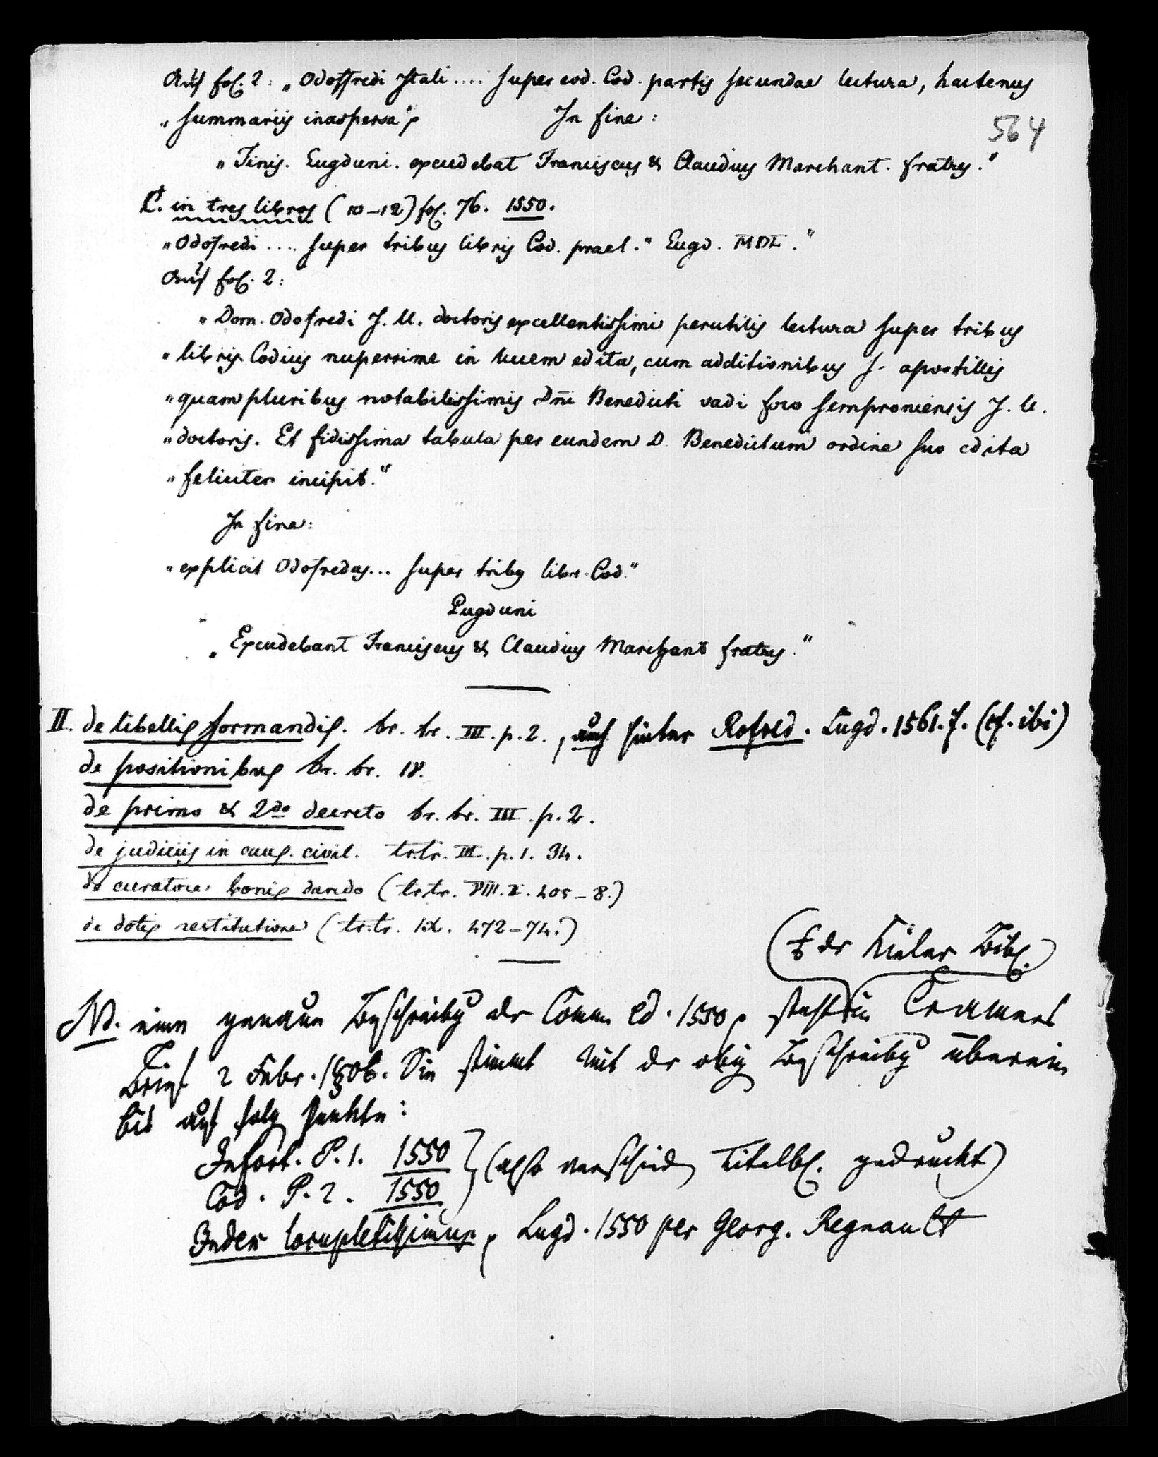 Auf fol. 2: „Odoffredi Itali .... super eod. Cod. partis secundae lectura, hactenus
„summariis inaspersa“,    In fine:
564
„Finis. Lugduni. excudebat Franciscus & Claudius Marchant. fratres.“
C. in tres libros (10–12) fol. 76. 1550.
„Odofredi .... super tribus libris Cod. prael.“ Lugd. MDL.“
Auf fol. 2:
„Dom. Odofredi J. U. doctoris excellentissimi perutilis lectura super tribus
„libris Codicis nuperrime in lucem edita, cum additionibus s. apostillis
„quampluribus notabilissimis Dni Benedicti vadi foro semproniensis J. U.
„doctoris. Et fidissima tabula per eundem D. Benedictum ordine suo edita
„feliciter incipit.“
In fine:
„explicit Odofredus... super tribus libr. Cod.“
Lugduni
„Excudebant Franciscus & Claudius Marchant fratres.“
II. de libellis formandis. tr. tr. III. p. 2., auch hinter Rofred. Lugd. 1561. f. (cf. ibi)
de positionibus tr. tr. IV.
de primo & 2do decreto tr. tr. III. p. 2.
de judiciis in caus. civil. tr. tr. III. p. 1. 34.
de curatore bonis dando (tr. tr. VIII. 2. 205–8.)
de dotis restitutione (tr. tr. IX. 472–74.)
(der Kieler Bibl.)
NB. eine genaue Beschreibg der Comm. ed. 1550, steht in Cramers
Brief 2 Febr. 1806. Sie stimmt mit der obig Beschreibg überein
bis auf folg Punkte:
Infort. P. 1. 1550
Cod. P. 2. 1550 } (also verschied Titelbl. gedruckt)
Index locupletissimus, Lugd. 1550 per Georg. Regnault